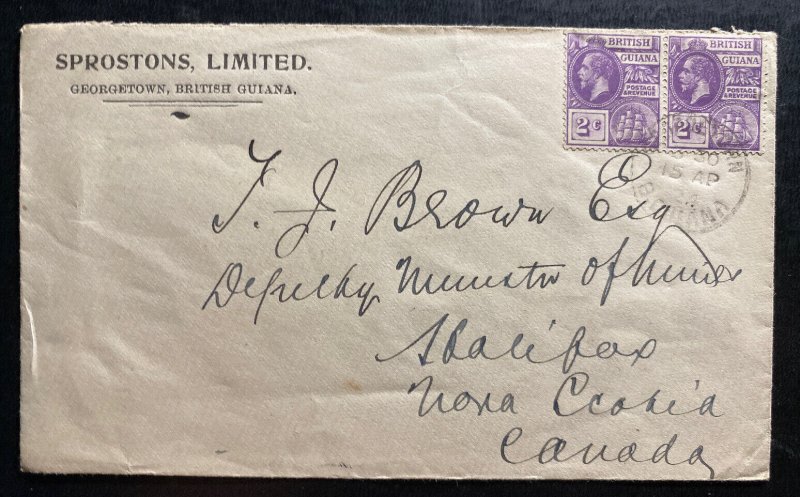 SPROSTONS, LIMITED.
GEORGETOWN, BRITISH GUIANA.
BRITISH
GUIANA
POSTAGE
& REVENUE
2 C
BRITISH
GUIANA
POSTAGE
& REVENUE
2 C
15 AP
T. J. Brown Esq
Deputy Minister of Mines
Halifax
Nova Scotia
Canada